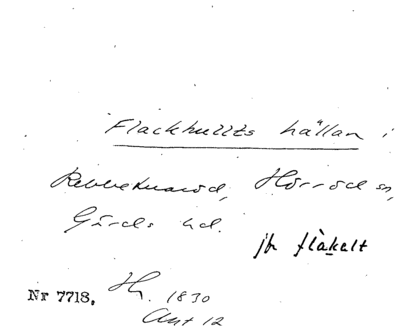 Flackhultts hällan i
Rebbetuaröd, Hörröd sn,
Gärds hd.
jfr flàkalt
Nr 7718. Hn. 1830
Ant 12